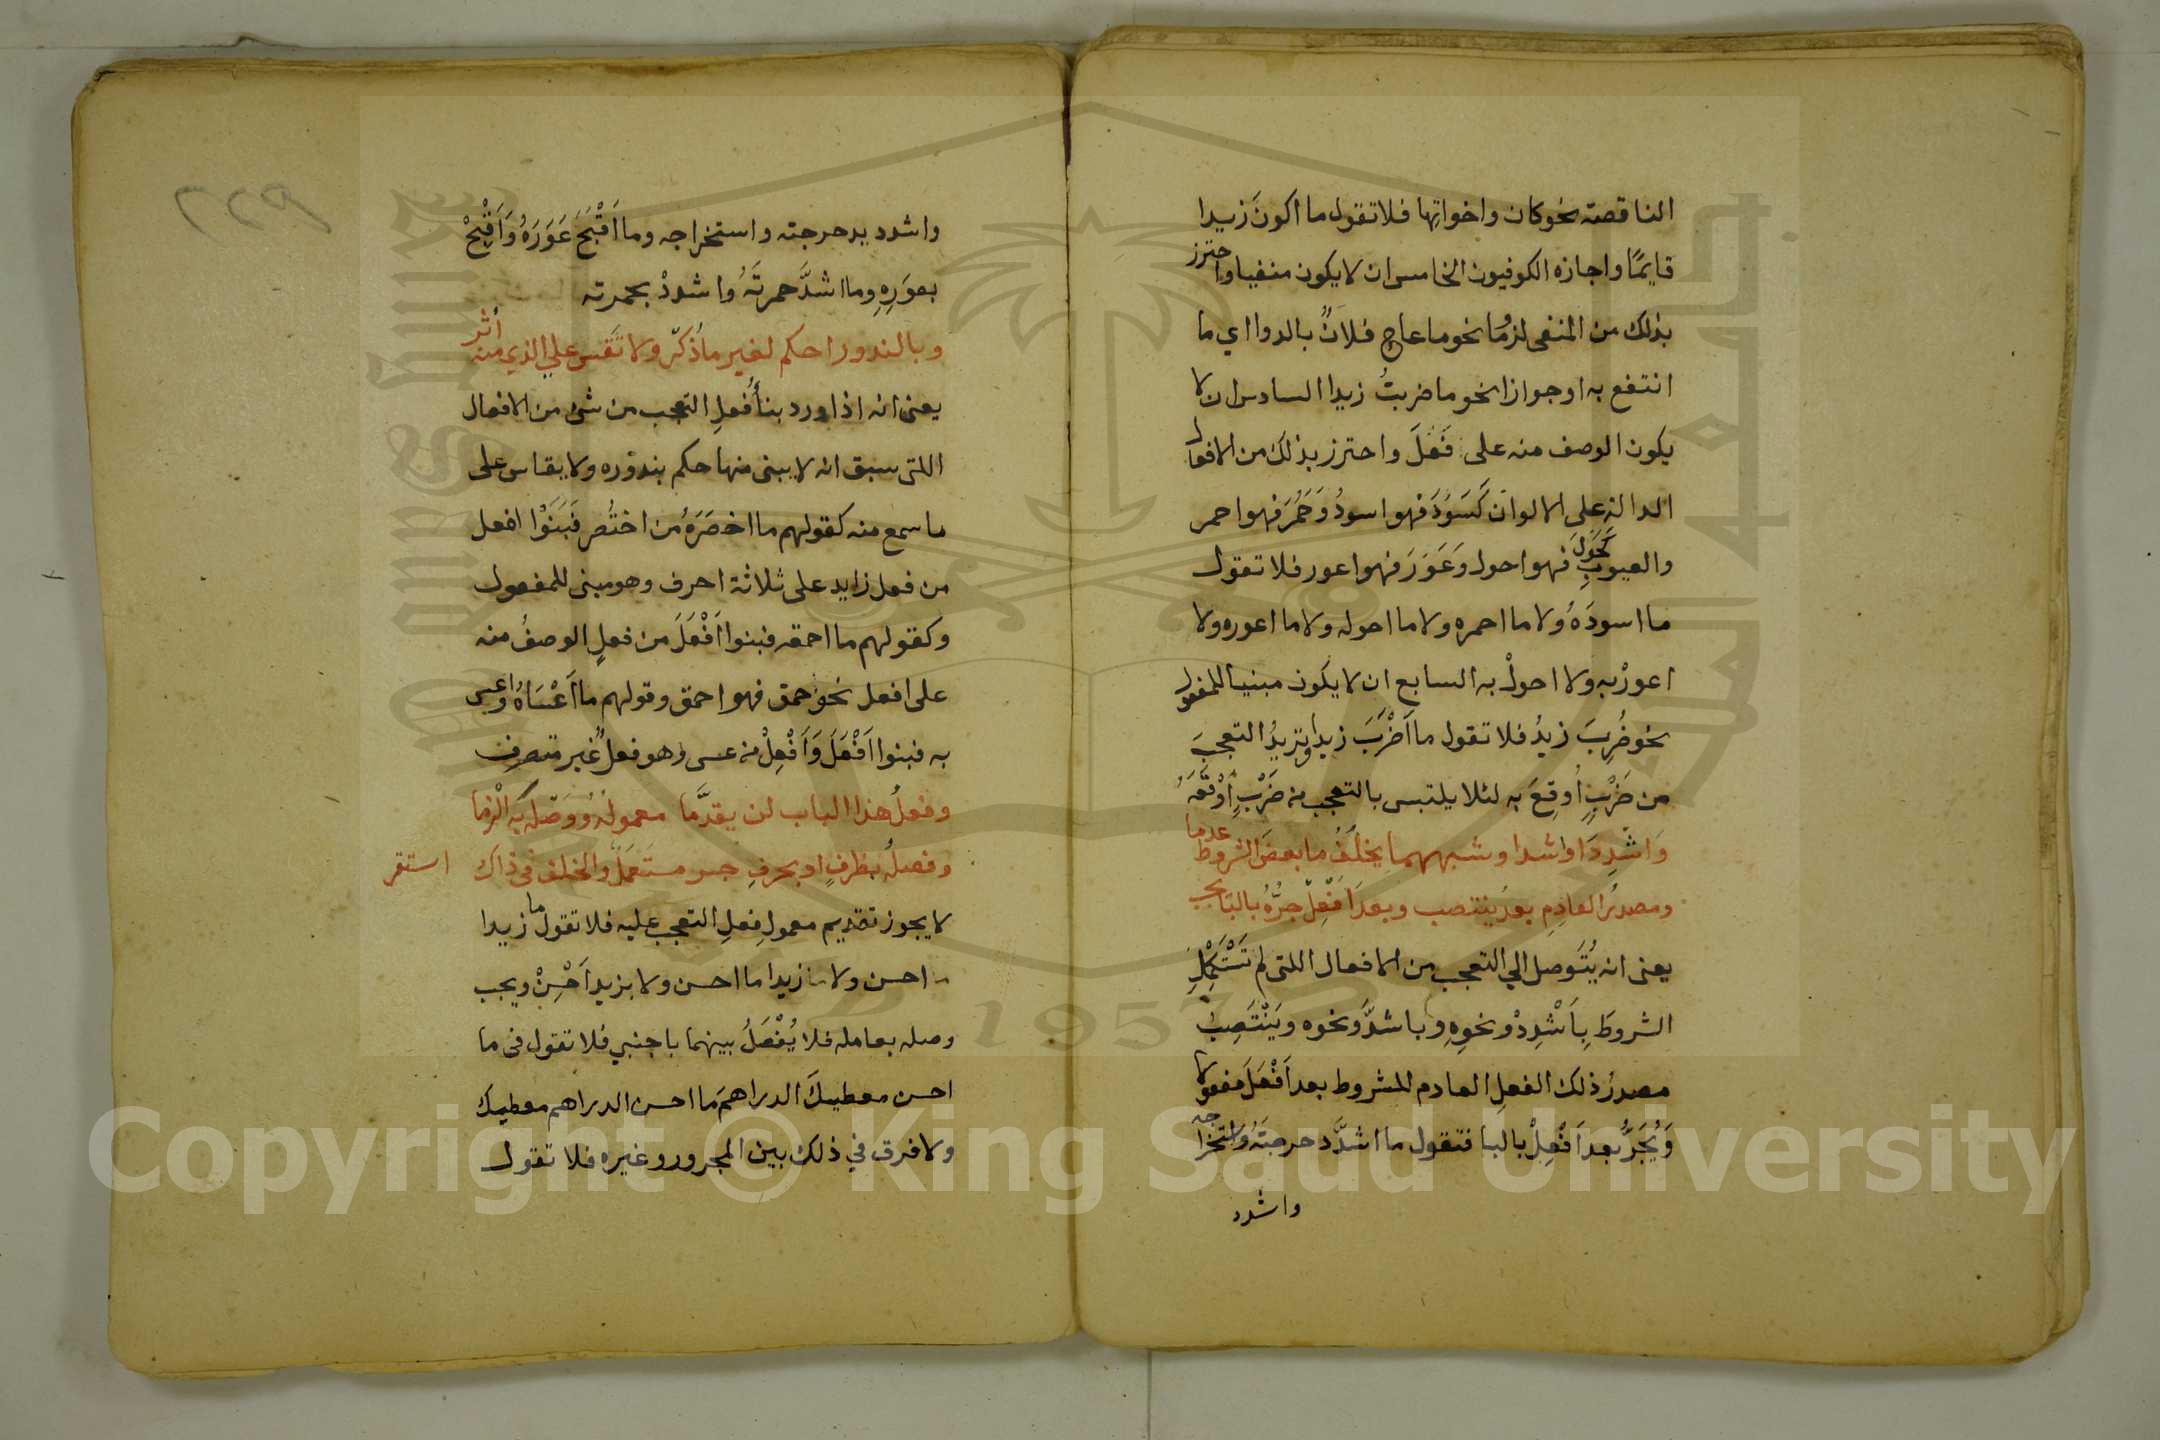 الناقصة نحو كان واخواتِها فلا تقول ما اكونَ زيدا
قايمًا واجازه الكوفيون الخامس ان لا يكون منفيا واحترز
بذلك من المنفى لزومًا نحو ما عاج فلانٌ بالدوا اي ما
انتفع به اوجوازا نحو ما ضربتُ زيدا السادس ان لا
يكون الوصف منه على أفْعَلَ واحترز بذلك من الافعال
الدالة على الالوان كَسَوُدَ فهو اسودُ وَحَمُرَ فهو احمر
والعيوبِ كَحَوِلَ فهو احول وَعَوَرَ فهو اعور فلا تقول
ما اسودَهُ ولا ما احمره ولا ما احوله ولا ما اعوره ولا
اعورْ بِه ولا احولْ به السابع ان لا يكون مبنيا للمفعول
نحو ضُرِبَ زيدٌ فلا تقول ما اَضْرَبَ زيدا وتريدُ التعجبَ
من ضَرْبٍ اُوقِعَ به لئلا يلتبس بالتعجب من ضَرْبٍ اَوْقَعَهُ
وَاشْدِدَ اَوْ اشدا وشبههما يخلُفُ ما بعضَ الشروطِ عدما
ومصدرُ العادِمِ بعدُ ينتصب وبعد اَفْعِلْ جرُّهُ بالبَا يجب
يعنى انه يُتَوصل الي التعجب من الافعال اللتى لم تَسْتَكْمِلِ
الشروطَ بِاَشْدِدْ ونحوِهِ وباشدَّ ونحوه ويَنْتَصِبُ
مصدرُ ذلك الفعلِ العادم للشروط بعد اَفْعَلَ مفعولا
وَيُجَرُّ بعد اَفْعِلْ بالبا فتقول ما اشدَّ دحرجتَهُ واستخراجه
واشدد
واشدد بدحرجته واستخراجه وما اَقْبَحَ عَوَرَهُ وَاَقْبِحْ
بعوَرِهِ وما اشدَّ حمرتَهُ واشددْ بحمرته
وبالندور احكم لغير ما ذُكِرْ ولا تَقِس علي الذي منه أثر
يعنى انه اذا ورد بنأُ فعلِ التعجب من شئ من الافعال
اللتى سبق انه لا يبنى منها حكم بندوره ولا يقاس على
ما سمع منه كقولهم ما اخصَرَهُ من اختُصِر فَبَنَوْا افعل
من فعل زايد على ثلاثة احرف وهو مبنى للمفعول
وكقولهم ما احمقه فبنوا اَفْعَلَ من فعلٍ الوصفُ منه
على افعل نحو حمق فهو احمق وقولهم ما اَعْسَاهُ واعسِ
به فبنوا اَفْعَلَ وَاَفْعِلْ من عسى وهو فعلٌ غير متصرف
وفعلُ هذا الباب لن يقدَّما معمولُهُ وَوَصْلَه به الْزَما
وفصلُه بظرفٍ او بحرفِ جر مستَعمَلٌ والخلف فى ذاك استقر
لا يجوز تقديم معمولِ فعلِ التعجب عليه فلا تقول ما زيدا
احسن ولا زيدا ما احسن ولا بزيد اَحْسِنْ ويجب
وصله بعامله فلا يُفْصَلُ بينهما باجنبي فلا تقول فى ما
احسن معطيكَ الدراهمَ ما احسن الدراهم معطيك
ولا فرق في ذلك بين المجرور وغيره فلا تقول
Copyright © King Saud University
1957